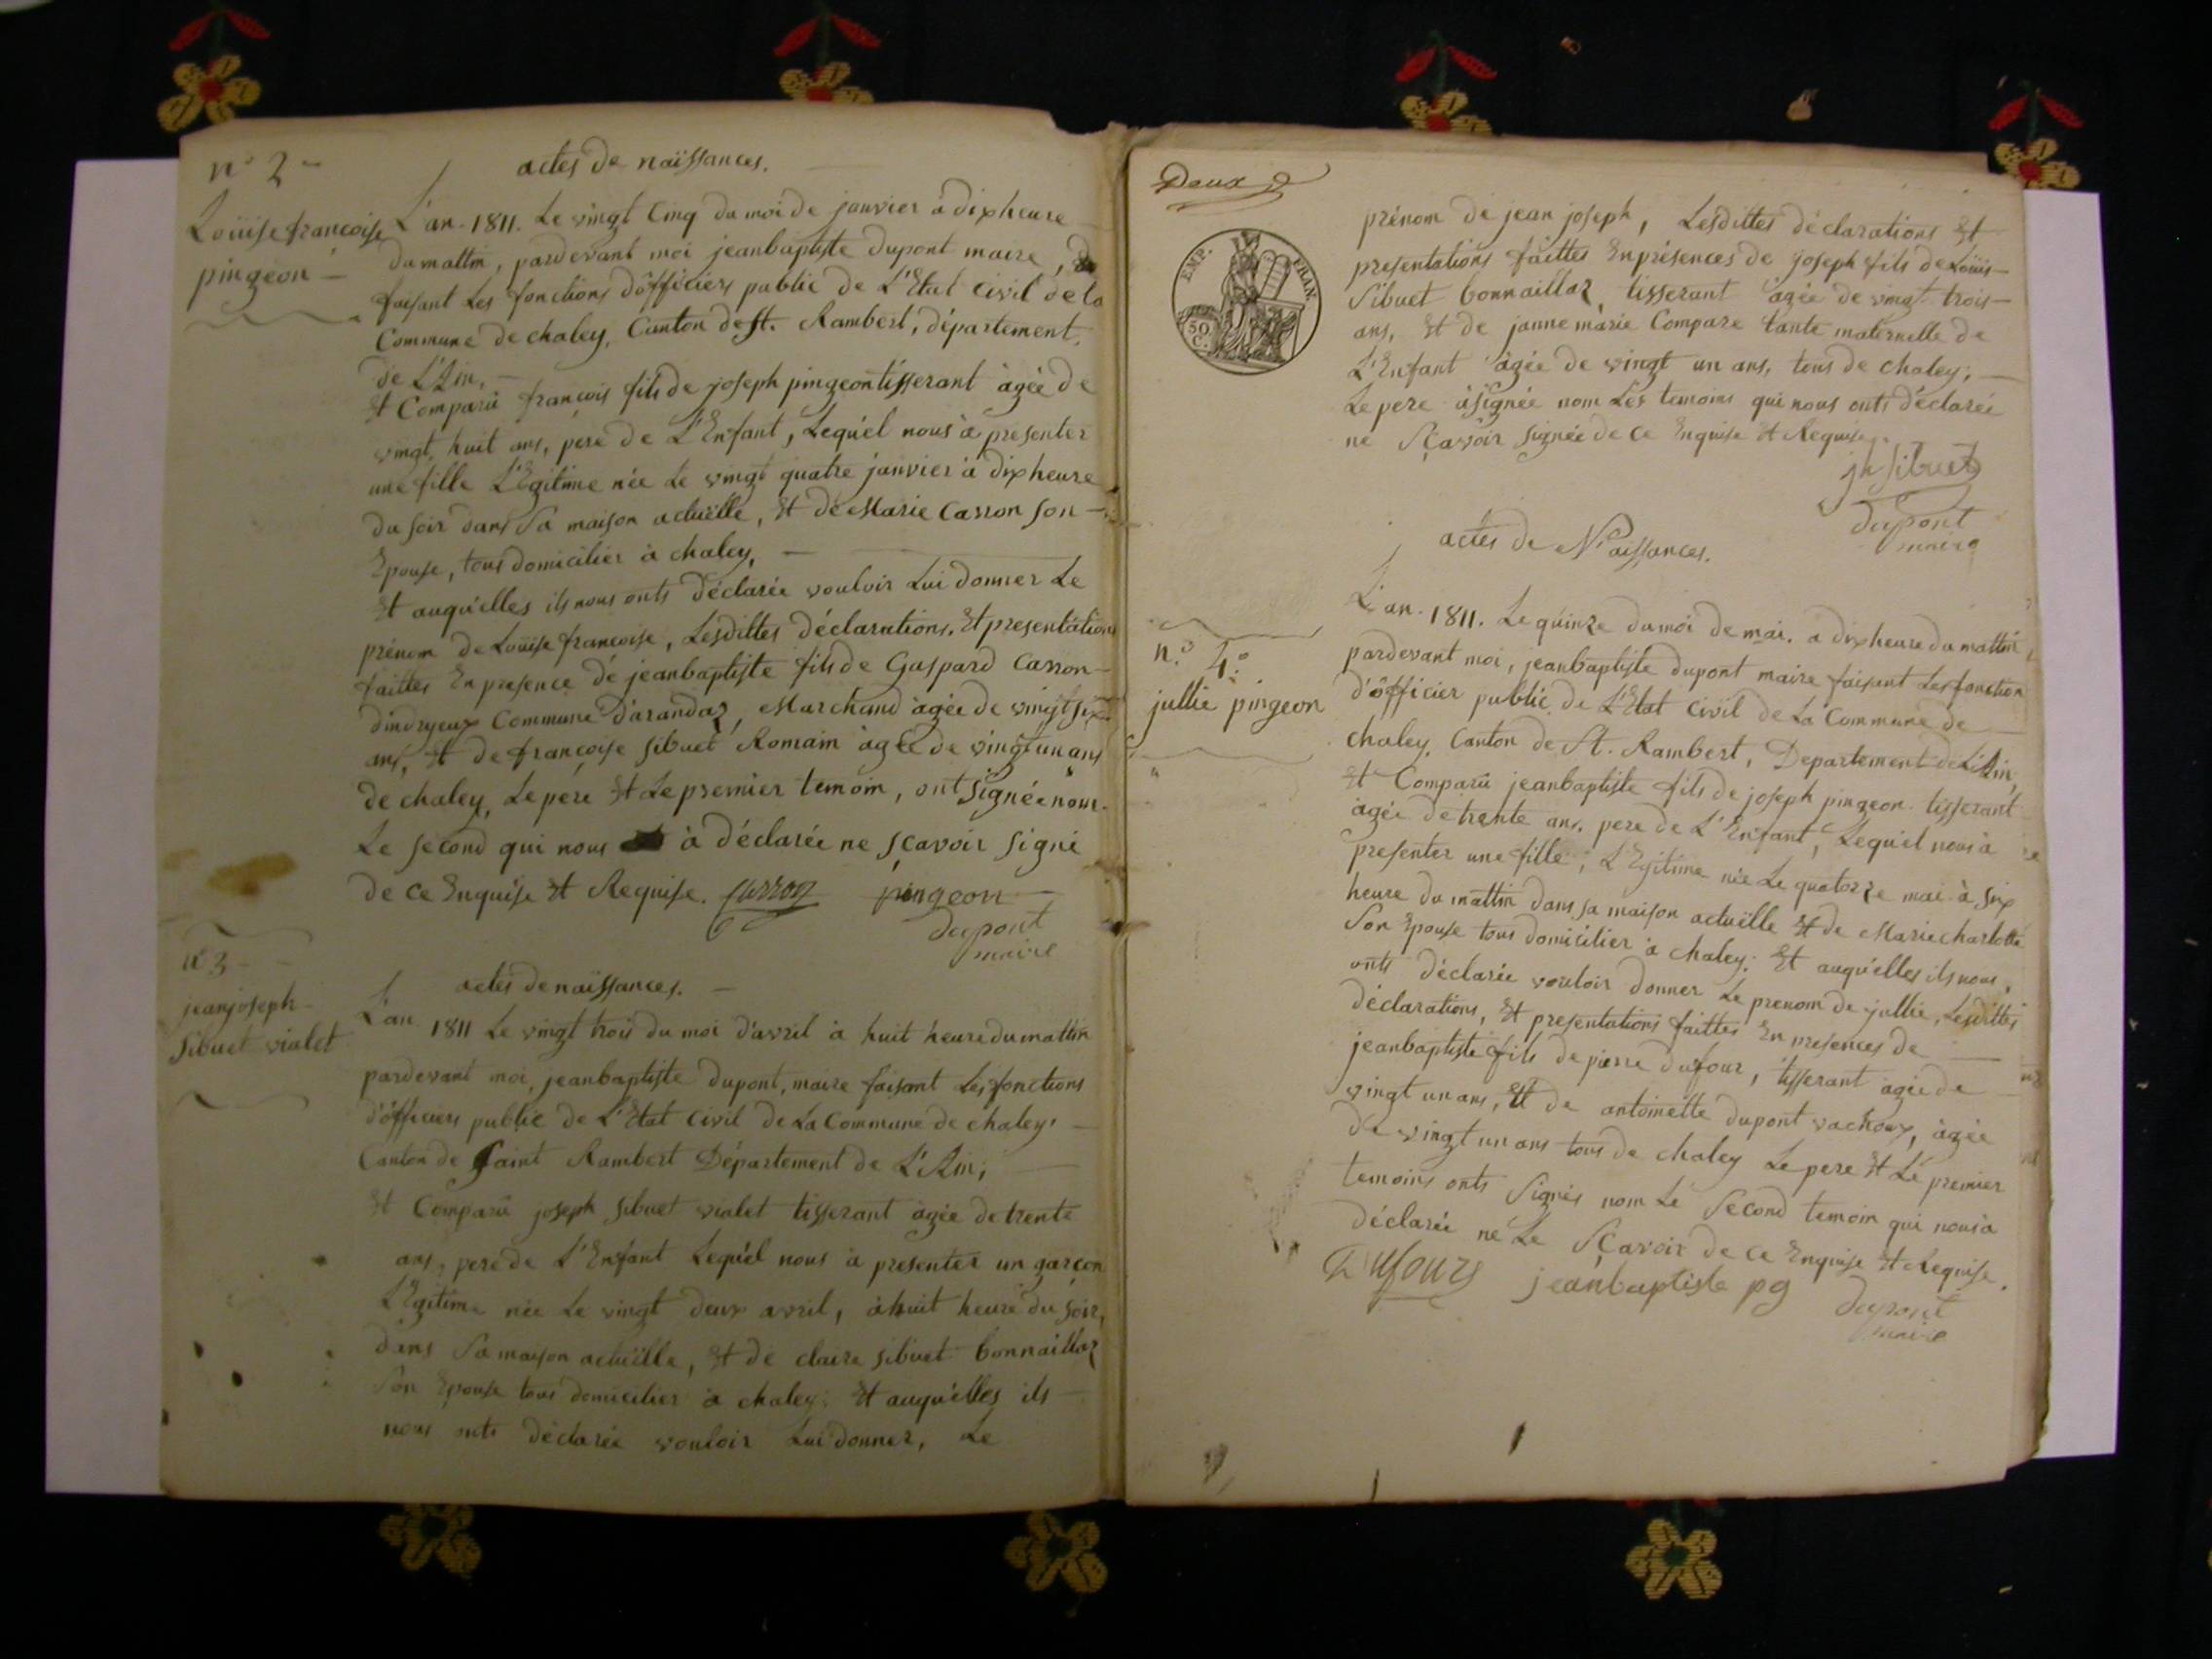 n° 2
actes de naïssances.
Loüise françoise
pingeon
L'an. 1811. Le vingt Cinq du moi de janvier à dix heure
du mattin, pardevant moi jeanbaptiste dupont maire,
faisant Les fonctions d'officiers public de L'Etat Civil de la
Commune de chaley, Canton de st. Rambert, département
de L'Ain.
Et Comparû françois fils de joseph pingeon tisserant àgée de
vingt huit ans, pere de L'Enfant, Lequ'el nous à presenter
une fille L'Egitime née Le vingt quatre janvier à dix heure
du soir dans sa maison actuëlle, Et de Marie Carron son
Epouse, tous domicilier à chaley.
Et auqu'elles ils nous onts déclarée vouloir Lui donner Le
prénom de Loüise françoise, Lesdittes déclarations. Et presentations
faittes En presence de jeanbaptiste fils de Gaspard Carron
d'indryeux Commune d'arandaz, Marchand àgée de vingt six
ans, Et de françoise sibuet Romain àgée de vingt un ans
de chaley, Le pere Et Le premier temoin, ont signée nom
Le second qui nous à déclarée ne sçavoir signé
de ce Enquise Et Requise. Carron pingeon
dupont
maire
n° 3
jean joseph
sibuet vialet
actes de naïssances.
L'an 1811 Le vingt trois du moi d'avril à huit heure du mattin
pardevant moi, jeanbaptiste dupont, maire faisant Les fonctions
d'officiers public de L'Etat Civil de La Commune de chaley,
Canton de Saint Rambert Département de L'Ain;
Et Comparû joseph sibuet vialet tisserant àgée de trente
ans, pere de L'Enfant Lequ'el nous à presenter un garçon
L'Egitime née Le vingt deux avril, à huit heure du soir,
dans sa maison actuëlle, Et de claire sibuet bonnaillaz
son Epouse tous domicilier à chaley; Et auqu'elles ils
nous onts déclarée vouloir Lui donner, Le
Deux
EMP. FRAN.
50
C.
prénom de jean joseph, Lesdittes déclarations Et
presentations faittes En présences de joseph fils de Loüis
Sibuet bonnaillaz, tisserant àgée de vingt trois
ans, Et de janne màrie Compare tante maternelle de
L'Enfant àgée de vingt un ans, tous de chaley;
Le pere à signée nom Les temoins qui nous onts déclarée
ne sçavoir signée de ce Enquise Et Requise.
jh sibuet
dupont
maire
actes de Naissances.
n.° 4.°
jullie pingeon
L'an. 1811. Le quinze du moi de mai. a dix heure du mattin
pardevant moi, jeanbaptiste dupont maire faisant Les fonction
d'officier public de L'Etat Civil de La Commune de
chaley, Canton de St. Rambert, Departement de L'Ain,
Et Comparû jeanbaptiste fils de joseph pingeon tisserant
àgée de trente ans. pere de L'Enfant, Lequ'el nous à
presenter une fille; L'Egitime née Le quatorze mai à six
heure du mattin dans sa maison actuëlle Et de Marie charlotte
Son Epouse tous domicilier à chaley; Et auqu'elles ils nous
onts déclarée vouloir donner Le prenom de jullie, Lesdittes
déclarations, Et presentations faittes En presences de
jeanbaptiste fils de pierre dufour, tisserant àgée de
vingt un ans, Et de antoinette dupont vachoux, àgée
de vingt un ans tous de chaley Le pere Et Lé premier
temoins onts signés nom Le Second temoin qui nous à
déclarée ne Le Sçavoir de ce Enquise Et Requise.
Dufour jeanbaptiste pg dupont
maire